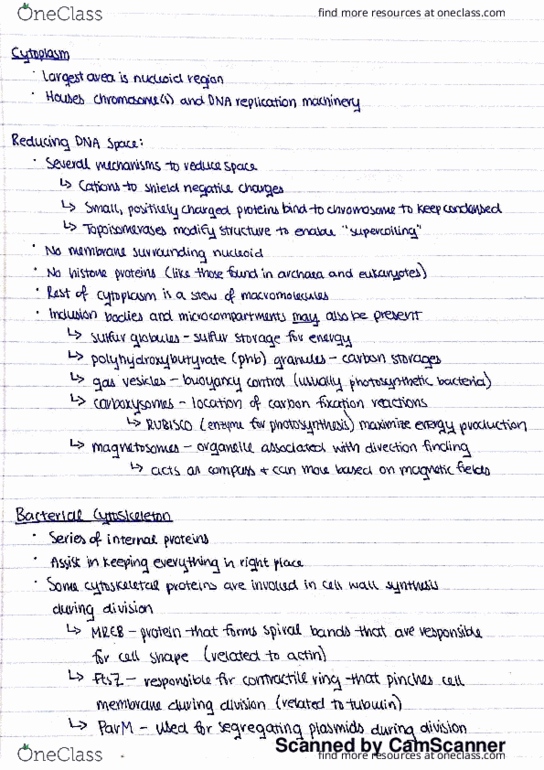 OneClass find more resources at oneclass.com
Cytoplasm
· Largest area is nucleoid region
· Houses chromosome(s) and DNA replication machinery
Reducing DNA Space:
· Several mechanisms to reduce space
↳ Cations to shield negative charges
↳ Small, positively charged proteins bind to chromosome to keep condensed
↳ Topoisomerases modify structure to enable "supercoiling"
· No membrane surrounding nucleoid
· No histone proteins (like those found in archaea and eukaryotes)
· Rest of cytoplasm is a stew of macromolecules
· Inclusion bodies and microcompartments may also be present
↳ sulfur globules - sulfur storage for energy
↳ polyhydroxybutyrate (phb) granules - carbon storages
↳ gas vesicles - buoyancy control (usually photosynthetic bacteria)
↳ carboxysomes - location of carbon fixation reactions
↳ RUBISCO (enzyme for photosynthesis) maximize energy production
↳ magnetosomes - organelle associated with direction finding
↳ acts as compass + can move based on magnetic fields
Bacterial Cytoskeleton
· Series of internal proteins
· Assist in keeping everything in right place
· Some cytoskeletal proteins are involved in cell wall synthesis
during division
↳ MREB - protein that forms spiral bands that are responsible
for cell shape (related to actin)
↳ FtsZ - responsible for contractile ring that pinches cell
membrane during division (related to tubulin)
↳ ParM - used for segregating plasmids during division
Scanned by CamScanner
OneClass find more resources at oneclass.com